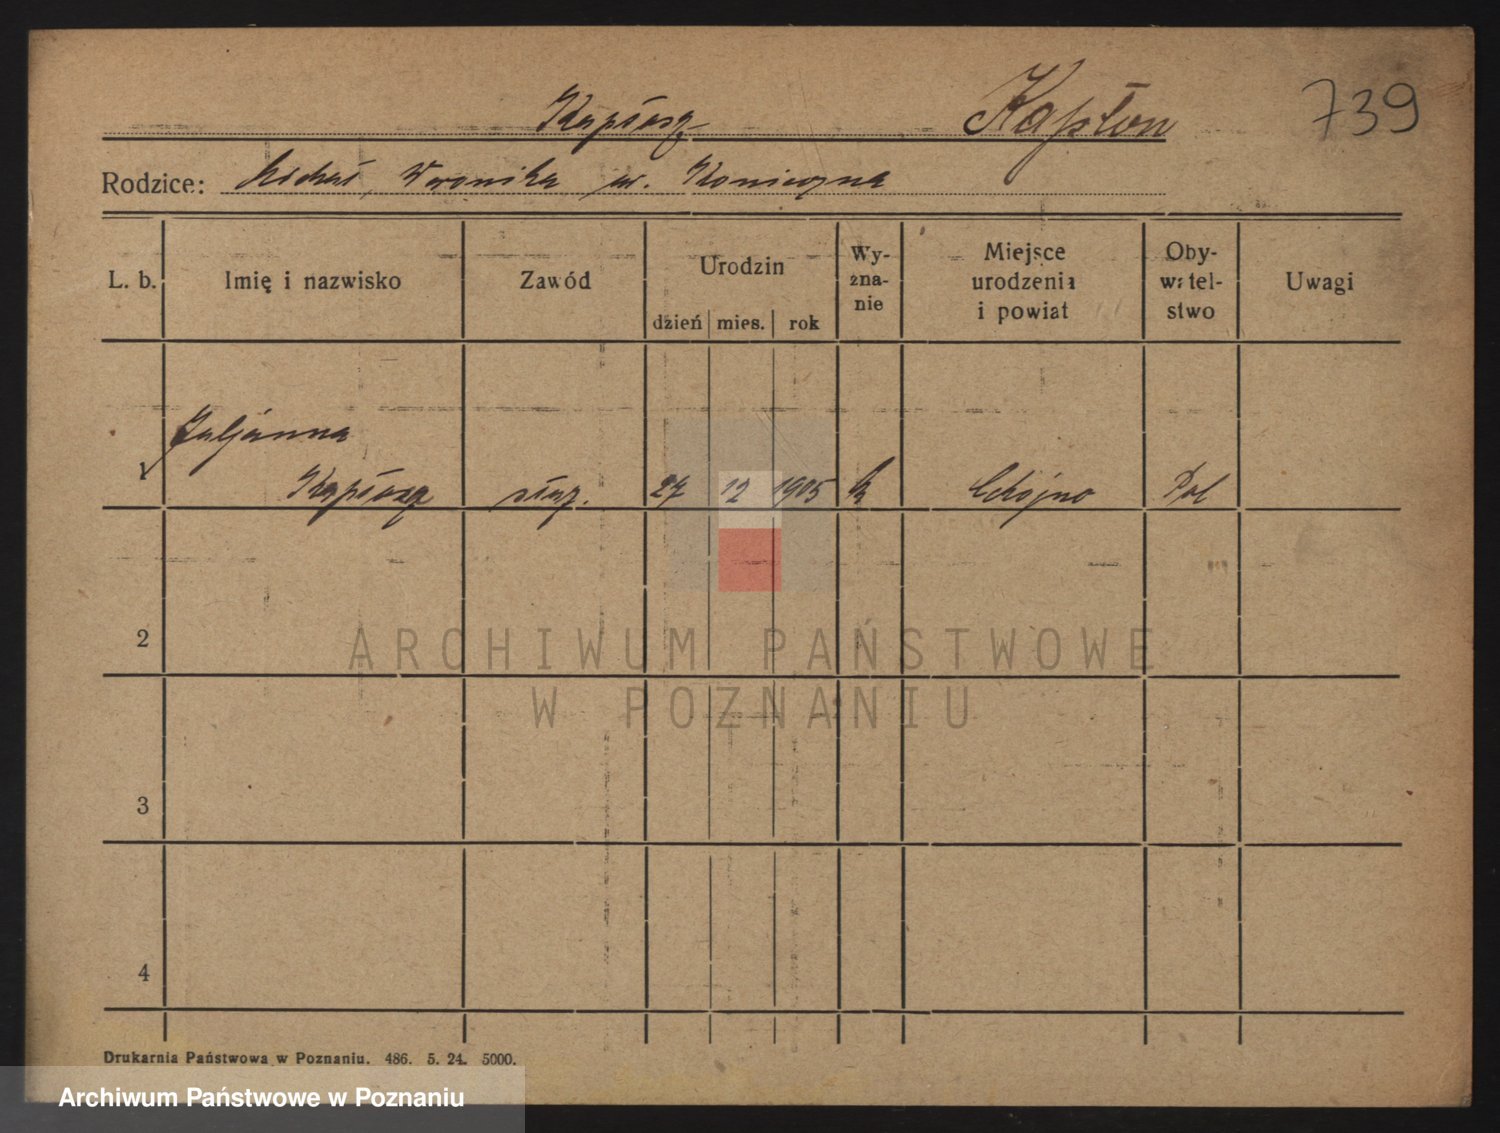 Kapłon 739
Rodzice: Michał, Weronika ur. Konieczna
L. b. Imię i nazwisko Zawód Urodzin dzień mies. rok Wy-znanie Miejsce urodzenia i powiat Oby-watel-stwo Uwagi
Juljanna
1 służ. 27 12 1905 k Chojno Pol
2
ARCHIWUM PAŃSTWOWE
W POZNANIU
3
4
Drukarnia Państwowa w Poznaniu. 486. 5. 24. 5000.
Archiwum Państwowe w Poznaniu